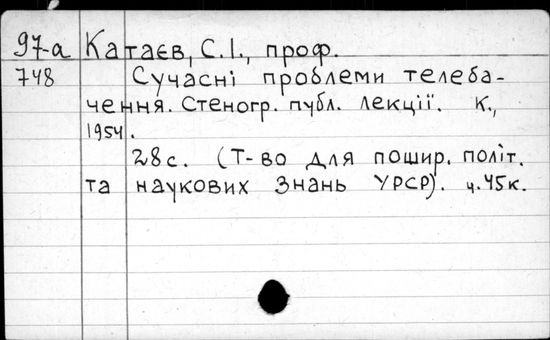 97-а Катаєв, С.І., проф.
748 Сучасні проблеми телеба-
чення. Стеногр. публ. лекції. К.,
1954.
28с. (Т-во для пошир. політ.
та наукових знань УРСР). ц. 45к.